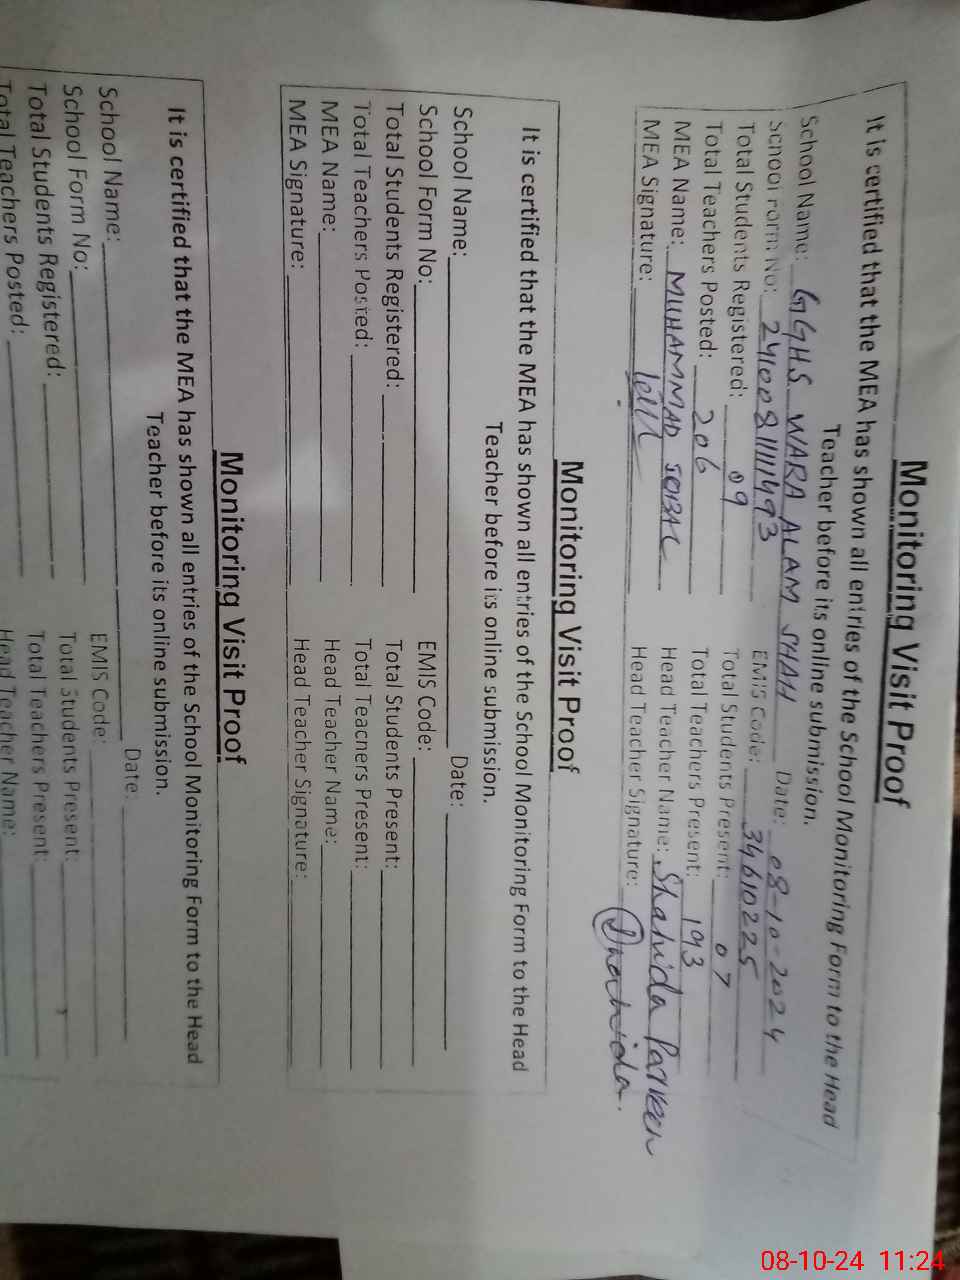 Monitoring Visit Proof
It is certified that the MEA has shown all entries of the School Monitoring Form to the Head
Teacher before its online submission.
School Name: GGHS WARA ALAM SHAH Date: 08-10-2024
School Form No: EMIS Code: 34610225
Total Students Registered: 09 Total Students Present: 07
Total Teachers Posted: 206 Total Teachers Present: 193
MEA Name: MUHAMMAD IQBAL Head Teacher Name: Shahida Parveen
MEA Signature: Head Teacher Signature:
Monitoring Visit Proof
It is certified that the MEA has shown all entries of the School Monitoring Form to the Head
Teacher before its online submission.
School Name: Date:
School Form No: EMIS Code:
Total Students Registered: Total Students Present:
Total Teachers Posted: Total Teachers Present:
MEA Name: Head Teacher Name:
MEA Signature: Head Teacher Signature:
Monitoring Visit Proof
It is certified that the MEA has shown all entries of the School Monitoring Form to the Head
Teacher before its online submission.
School Name: Date:
School Form No: EMIS Code:
Total Students Registered: Total Students Present:
Total Teachers Posted: Total Teachers Present:
Head Teacher Name:
08-10-24 11:24